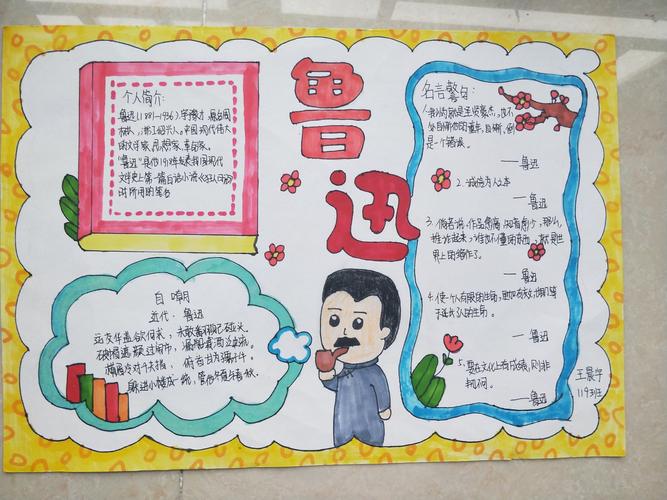 鲁迅
个人简介:
鲁迅(1881—1936)字豫才,原名周
树人,浙江绍兴人。中国现代伟大
的文学家、思想家、革命家。
"鲁迅"是他1918年发表我国现代
文学史上第一篇白话小说《狂人日记》
时所用的笔名
自嘲
近代:鲁迅
运交华盖欲何求,未敢翻身已碰头。
破帽遮颜过闹市,漏船载酒泛中流。
横眉冷对千夫指,俯首甘为孺子牛。
躲进小楼成一统,管他冬夏与春秋。
名言警句:
就是圣贤豪杰,也不
必自惭他的童年,自惭,倒
是一个错误。
——鲁迅
2.诚信为人之本
——鲁迅
3.倘若说,作品愈高,知音愈少。那么,
推论起来,谁也不懂的东西,就是世
界上的绝作了。
——鲁迅
4.使一个人的有限的生命,
——鲁迅
5.要在文化上有成绩,则非
韧不可。
——鲁迅
王晨宇
1193班